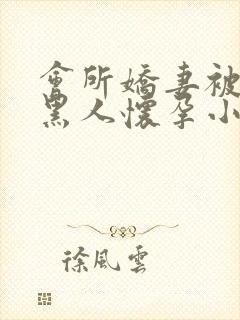 會所嬌妻被
黑人懷孕小
徐風雲